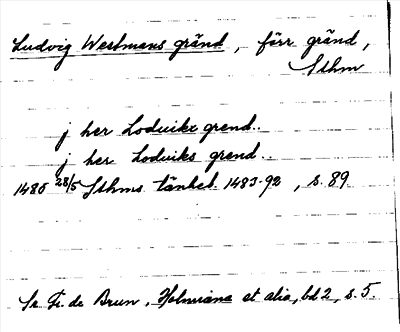 Ludvig Westmans gränd, förr gränd,
Sthm
j her Lodvikx grend..
j her Lodviks grend..
1485 28/5 Sthms tänkeb. 1483-92, s. 89
Se Fr. de Brun, Holmiana et alia, bd 2, s. 5.